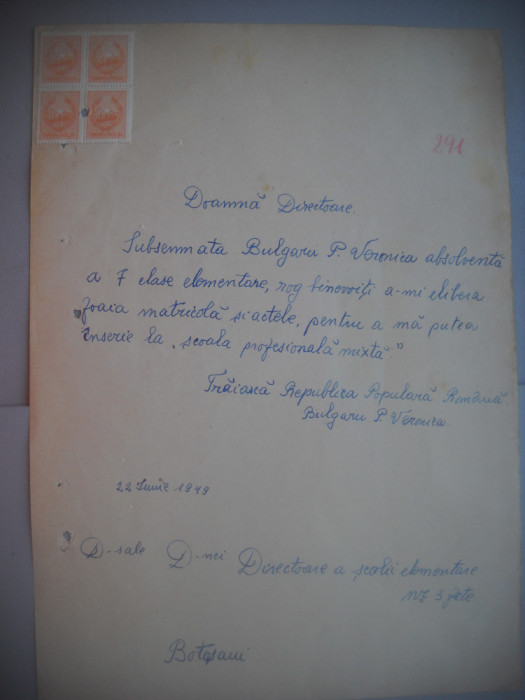 291
Doamnă Directoare.
Subsemnata Bulgaru P. Veronica absolventă
a 7 clase elementare, rog binevoiți a-mi elibera
foaia matricolă și actele, pentru a mă putea
înscrie la „școala profesională mixtă"
Trăiască Republica Populară Română
Bulgaru P. Veronica
22 Iunie 1949
D-sale D-nei Directoare a școlii elementare
nr 3 fete
Botoșani